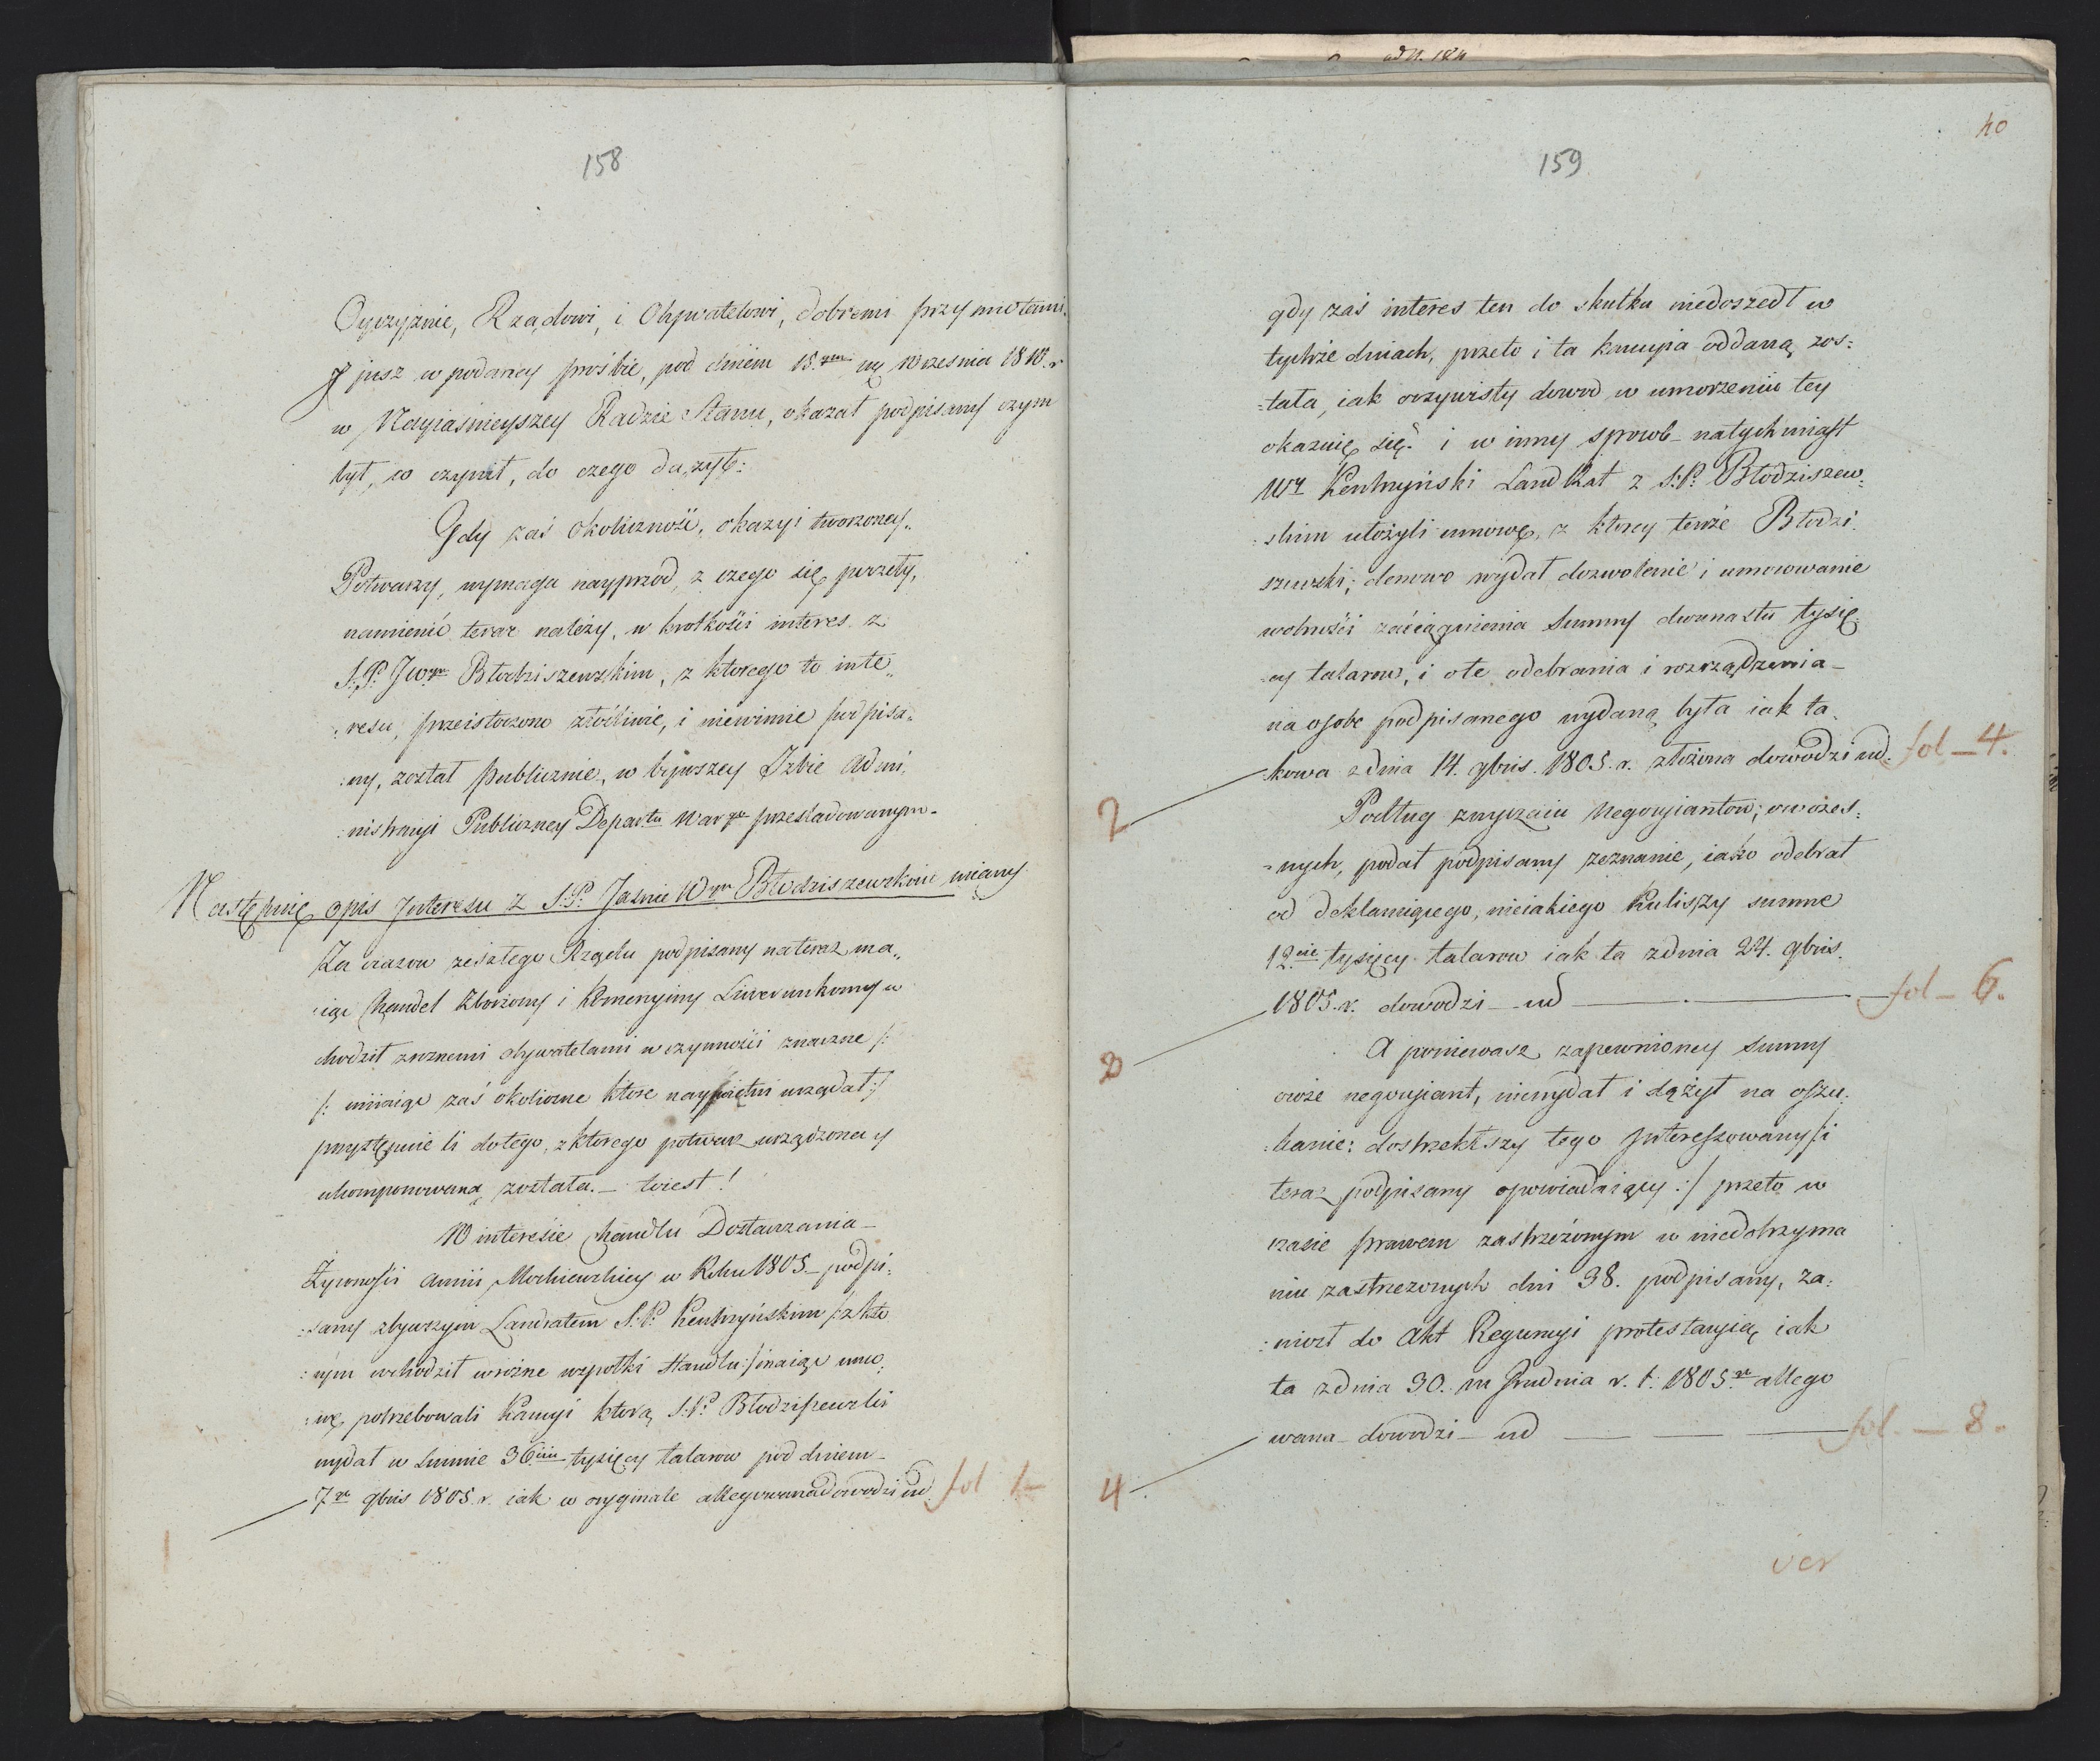 158
Oyczyznie, Rządowi, i Obywatelowi, dobremi przymiotami.
J jusz w podaney prośbie, pod dniem 15. Wrzesnia 1810. r
w Nayiaśnieyszey Radzie Stanu, okazał podpisany czym
był, co czynił, do czego dążył:
Gdy zaś okoliczność, okazyi tworzoney„
Potwarzy, wymaga nayprzod, z czego się poczęły,
namienić teraz należy, w krotkości interes z
S.P. JWym Błodziszewskim, z ktorego to inte„
:resu, przeistoczono złośliwie, i niewinnie podpisa„
:ny, został publicznie, w bywszey Izbie Admi,
:nistracyi Publiczney Departu Wargo przesladowanym.
Następuię opis Interesu z S.P. Jaśnie Wym Błodziszewskim miany
Za czasow zeszłego Rządu podpisany nateraz ma„
:iąc Handel Zbożowy i Liwerunkowy w
chodził zroznemi obywatelami w czynności znaczne /:
/: miiaiąc zaś okoliczne ktore naypiętni urządał :/
przystępuie li dotego, z ktorego potwarz urządzona y
ukomponowaną została. — toiest!
W interesie Handlu Dostarczania —
Żywności Armii Moskiewskiey w Roku 1805 — podpi:
:sany zbywszym Landratem S.P. Kentrzyńskim /: z kto
:rym wchodził wrożne wspołki Handlu :/ maiąc umo:
:wę, potrzebowali Kaucyi ktorą S.P. Błodziszewski
wydał w Summie 36ciu tysięcy talarow pod dniem —
7go 9bris 1805. r. iak w oryginale allegowana dowodzi ud. fol 1 —
1
ad N. 184
40
159
gdy zaś interes ten do skutku niedoszedł w
tychże dniach, przeto i ta kaucyia oddaną zos:
:tała, iak oczywisty dowod w umorzeniu tey
okazuię się. i w inny sposob natychmiast
Wr Kentrzyński LandRat z S.P. Błodziszew:
:skim ułożyli umowę, z ktorey tenże Błodzi:
szewski; denowo wydał dozwolenie i umocowanie
wolności zaciągnienia Summy dwunastu tysię:
:cy talarow, i ote odebrania i rozrządzenia —
na osobe podpisanego wydaną była iak ta:
kowa zdnia 14. 9bris. 1805. r. złożona dowodzi ud. fol — 4.
2
Podług zwyczaiu Negocyiantow; owożes:
:nych, podał podpisany zeznanie, iako odebrał
od deklaruiącego, nieiakiego Kuliszy summe
12cie tysięcy talarow iak ta zdnia 24. 9bris.
1805. r. dowodzi — ud — fol — 6.
3
A poniewasz zapewnioney Summy
owże negocyiant, niewydał i dążył na oszu:
:kanie: dostrzekłszy tego Jnteressowany /: i
teraz podpisany opowiadaiący :/ przeto w
czasie prawem zastrzeżonym w niedotrzyma
niu zastrzeżonych dni 38. podpisany, za:
:niosł do Akt Regencyi protestacyią, iak
ta zdnia 30. m Grudnia r. t. 1805.go allego
wana — dowodzi — ud — fol. — 8.
4
ver